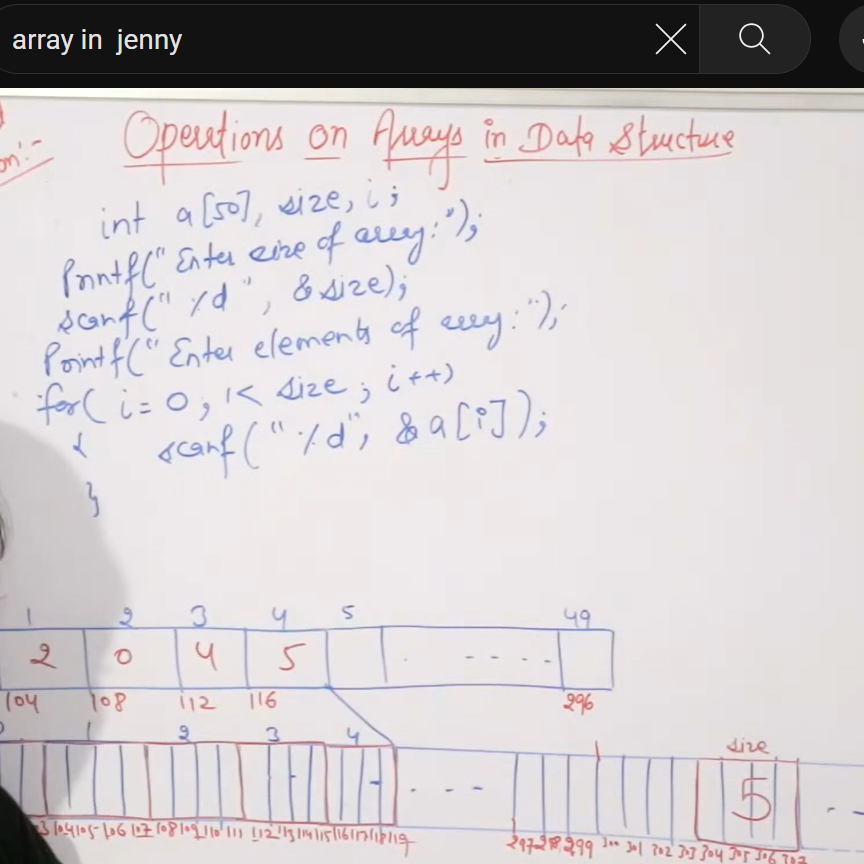 array in jenny
Operations on Arrays in Data Structure
on:-
int a[50], size, i;
Printf("Enter size of array:");
scanf("%d", &size);
Printf("Enter elements of array:");
for( i=0; i< size; i++)
{ scanf("%d", &a[i]);
}
1 2 3 4 5 49
2 0 4 5 . - - - -
104 108 112 116 296
1 2 3 4 size
. - - - 5 - -
3 104 105 106 107 108 109 110 111 112 113 114 115 116 117 118 119 297 298 299 300 301 302 303 304 305 306 307